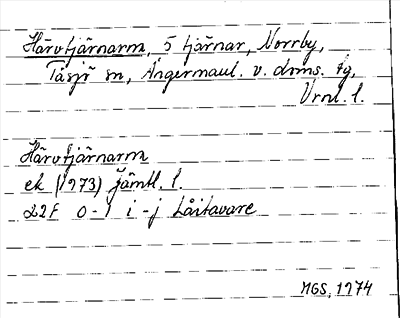 Härvtjärnarna, 5 tjärnar, Norrby,
Tåsjö sn, Ångermanl. v. doms. fg,
Vrnl. l.
Härvtjärnarna
ek (1973) Jämtl. l.
22F 0-1 i-j Låitavare
MGS, 1974